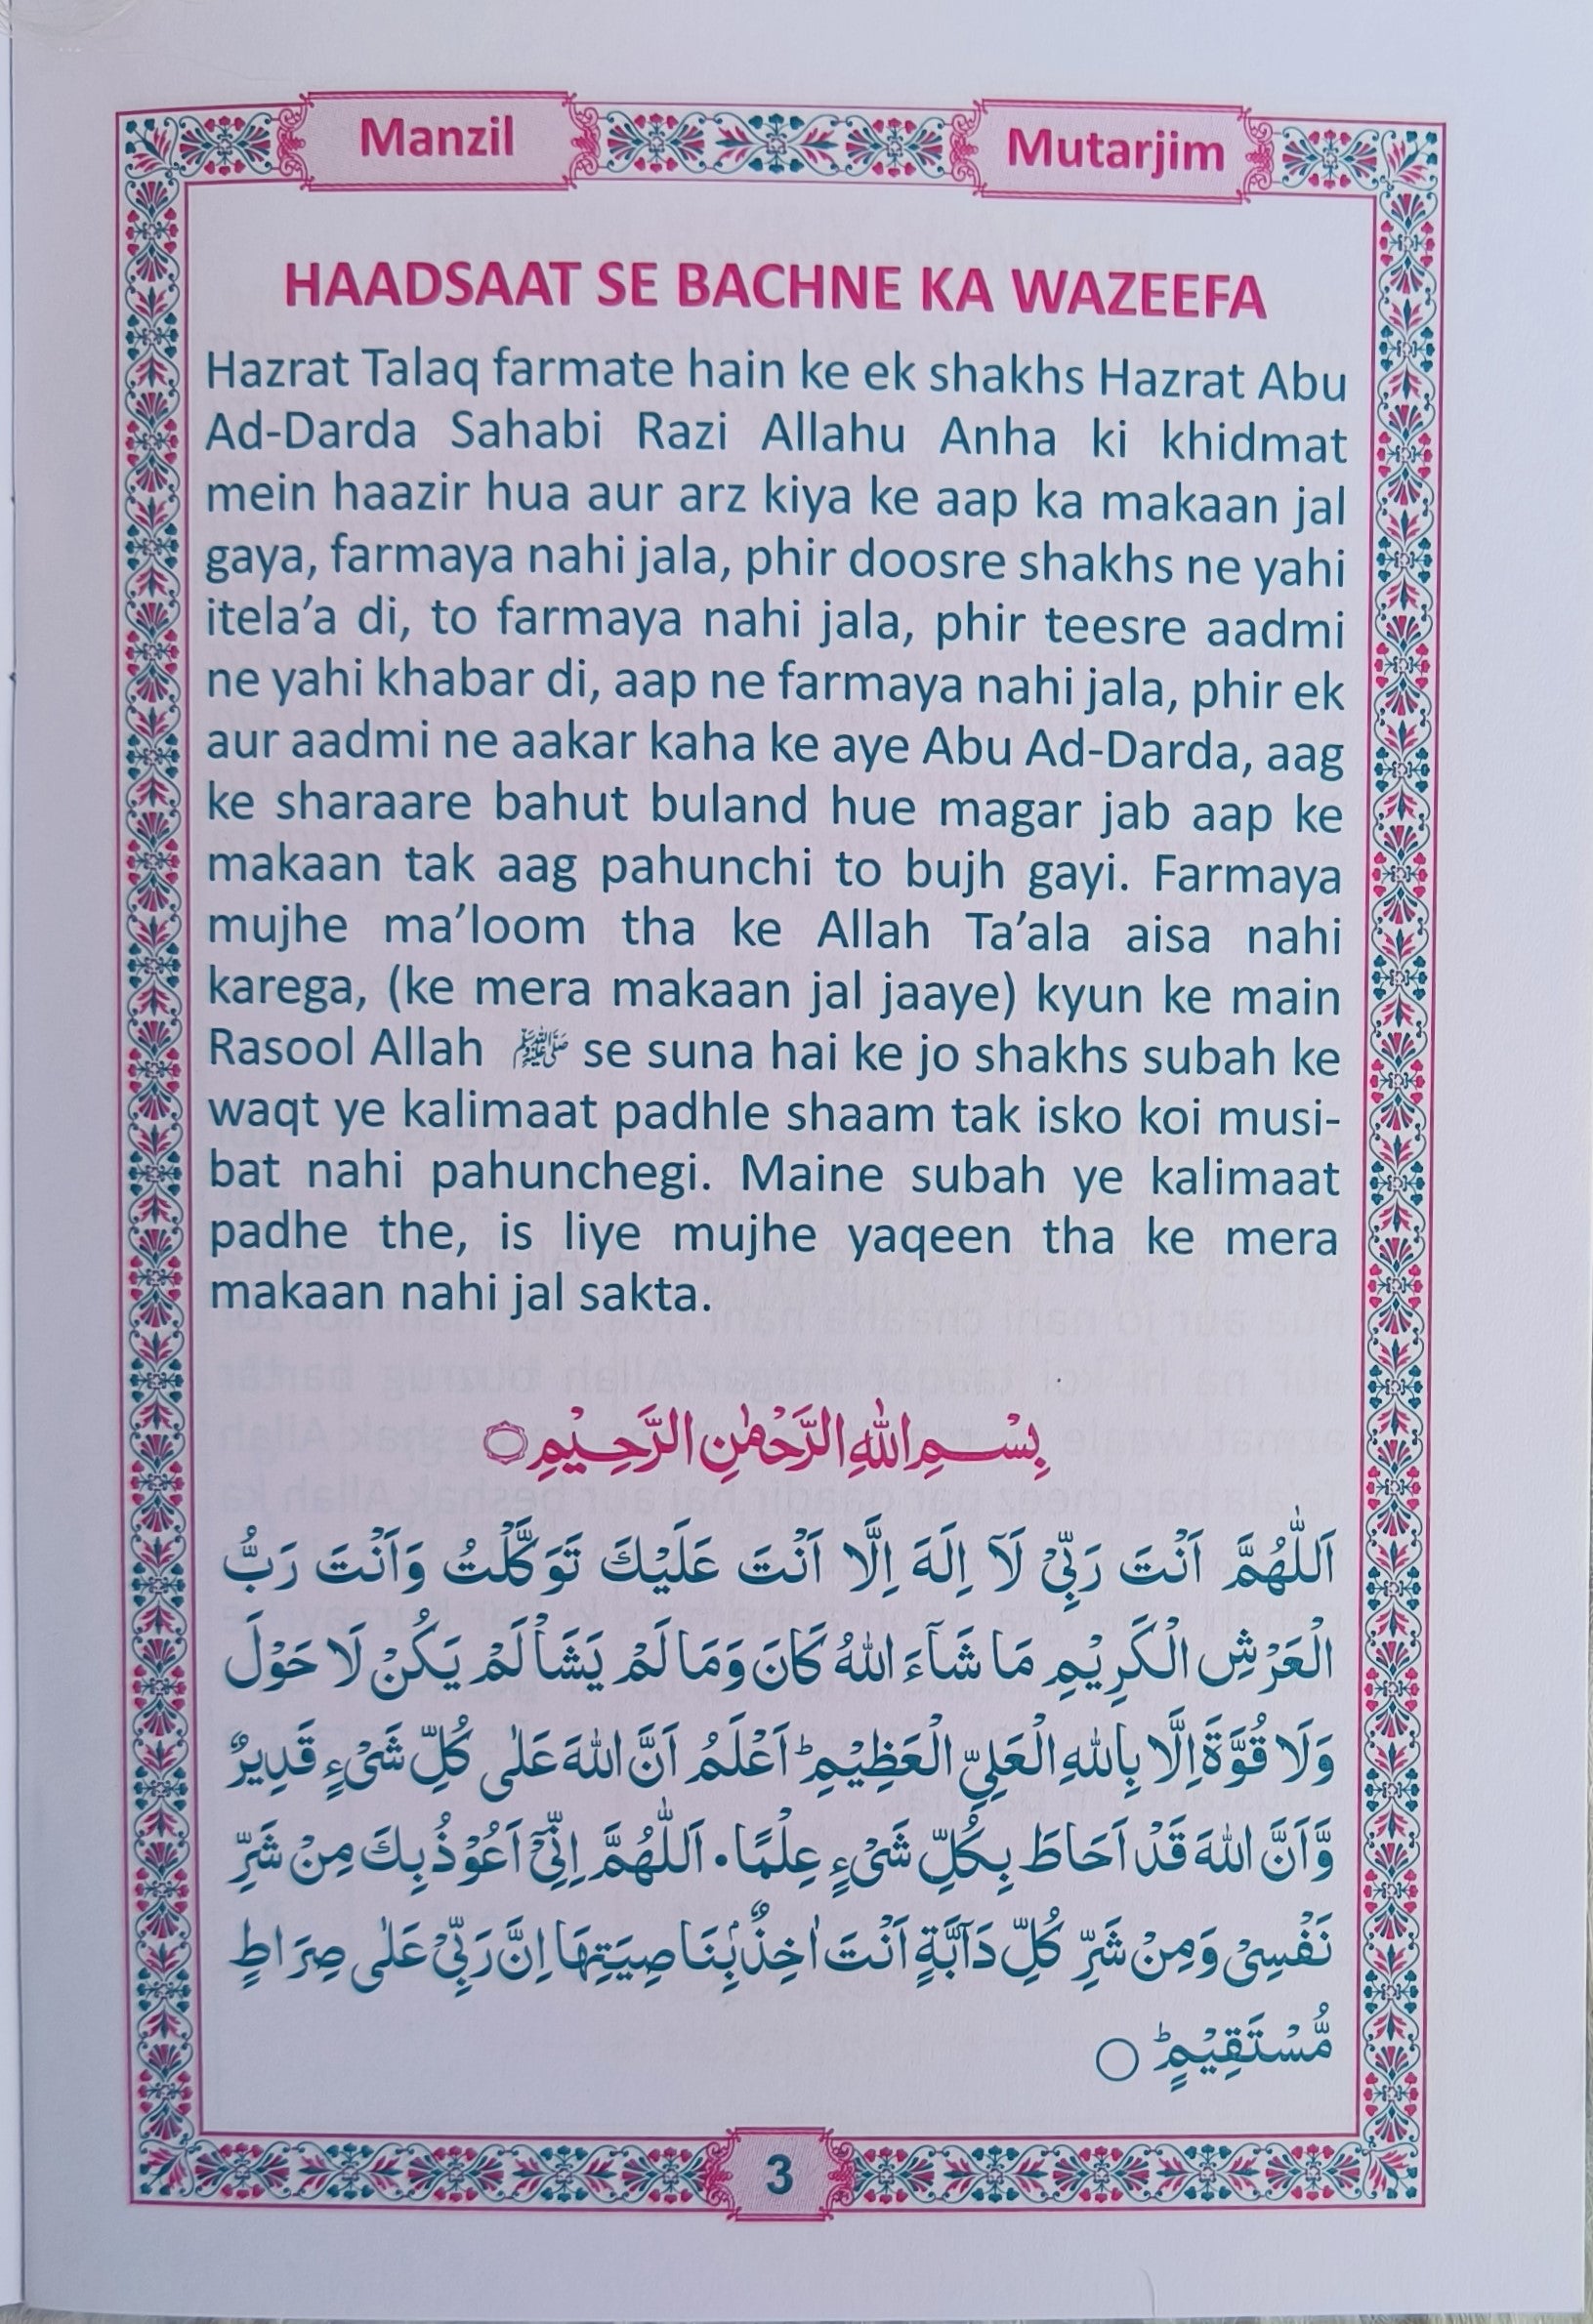 Manzil
Mutarjim
HAADSAAT SE BACHNE KA WAZEEFA
Hazrat Talaq farmate hain ke ek shakhs Hazrat Abu
Ad-Darda Sahabi Razi Allahu Anha ki khidmat
mein haazir hua aur arz kiya ke aap ka makaan jal
gaya, farmaya nahi jala, phir doosre shakhs ne yahi
itela’a di, to farmaya nahi jala, phir teesre aadmi
ne yahi khabar di, aap ne farmaya nahi jala, phir ek
aur aadmi ne aakar kaha ke aye Abu Ad-Darda, aag
ke sharaare bahut buland hue magar jab aap ke
makaan tak aag pahunchi to bujh gayi. Farmaya
mujhe ma’loom tha ke Allah Ta’ala aisa nahi
karega, (ke mera makaan jal jaaye) kyun ke main
Rasool Allah ﷺ se suna hai ke jo shakhs subah ke
waqt ye kalimaat padhle shaam tak isko koi musi-
bat nahi pahunchegi. Maine subah ye kalimaat
padhe the, is liye mujhe yaqeen tha ke mera
makaan nahi jal sakta.
بِسْمِ اللهِ الرَّحْمٰنِ الرَّحِيْمِ ○
اَللّٰهُمَّ اَنْتَ رَبِّيْ لَآ اِلٰهَ اِلَّا اَنْتَ عَلَيْكَ تَوَكَّلْتُ وَاَنْتَ رَبُّ
الْعَرْشِ الْكَرِيْمِ مَا شَآءَ اللهُ كَانَ وَمَا لَمْ يَشَاْ لَمْ يَكُنْ لَا حَوْلَ
وَلَا قُوَّةَ اِلَّا بِاللهِ الْعَلِيِّ الْعَظِيْمِ ؕ اَعْلَمُ اَنَّ اللهَ عَلٰى كُلِّ شَيْءٍ قَدِيْرٌ
وَّاَنَّ اللهَ قَدْ اَحَاطَ بِكُلِّ شَيْءٍ عِلْمًا۔ اَللّٰهُمَّ اِنِّيْٓ اَعُوْذُ بِكَ مِنْ شَرِّ
نَفْسِيْ وَمِنْ شَرِّ كُلِّ دَآبَّةٍ اَنْتَ اٰخِذٌۢ بِنَاصِيَتِهَا اِنَّ رَبِّيْ عَلٰى صِرَاطٍ
مُّسْتَقِيْمٍ ؕ ○
3